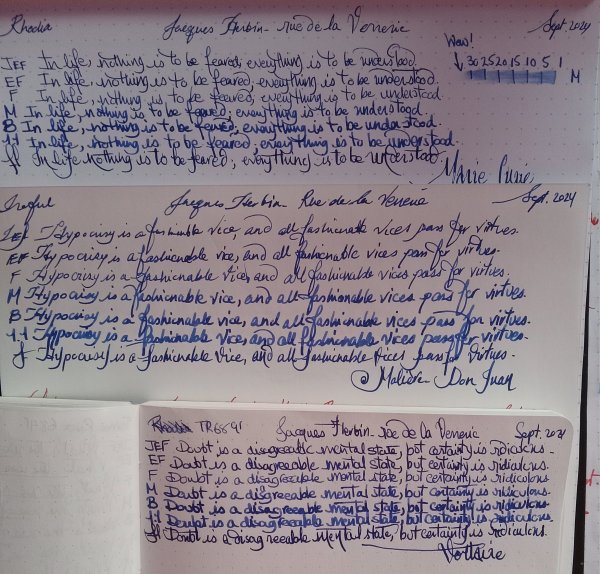 Rhodia Jacques Herbin - rue de la Verrerie Sept. 2024
Wow!
↓ 30 25 20 15 10 5 1
M
JEF In life, nothing is to be feared, everything is to be understood.
EF In life, nothing is to be feared, everything is to be understood.
F In life, nothing is to be feared, everything is to be understood.
M In life, nothing is to be feared, everything is to be understood.
B In life, nothing is to be feared, everything is to be understood.
1.1 In life, nothing is to be feared, everything is to be understood.
In life nothing is to be feared, everything is to be understood.
Marie Curie
Jacques Herbin - Rue de la Verrerie Sept. 2024
JEF Hypocrisy is a fashionable vice, and all fashionable vices pass for virtues.
EF Hypocrisy is a fashionable vice, and all fashionable vices pass for virtues.
F Hypocrisy is a fashionable vice, and all fashionable vices pass for virtues.
M Hypocrisy is a fashionable vice, and all fashionable vices pass for virtues.
B Hypocrisy is a fashionable vice, and all fashionable vices pass for virtues.
1.1 Hypocrisy is a fashionable vice, and all fashionable vices pass for virtues.
Hypocrisy is a fashionable vice, and all fashionable vices pass for virtues.
Molière - Don Juan
Rhodia TR6891 Jacques Herbin - rue de la Verrerie Sept. 2024
JEF Doubt is a disagreeable mental state, but certainty is ridiculous.
EF Doubt is a disagreeable mental state, but certainty is ridiculous.
F Doubt is a disagreeable mental state, but certainty is ridiculous
M Doubt is a disgreeable mental state, but certainty is ridiculous.
B Doubt is a disagreeable mental state, but certainty is ridiculous.
1.1 Doubt is a disagreeable mental state, but certainty is ridiculous.
Doubt is a disagreeable mental state, but certainty is ridiculous.
Voltaire